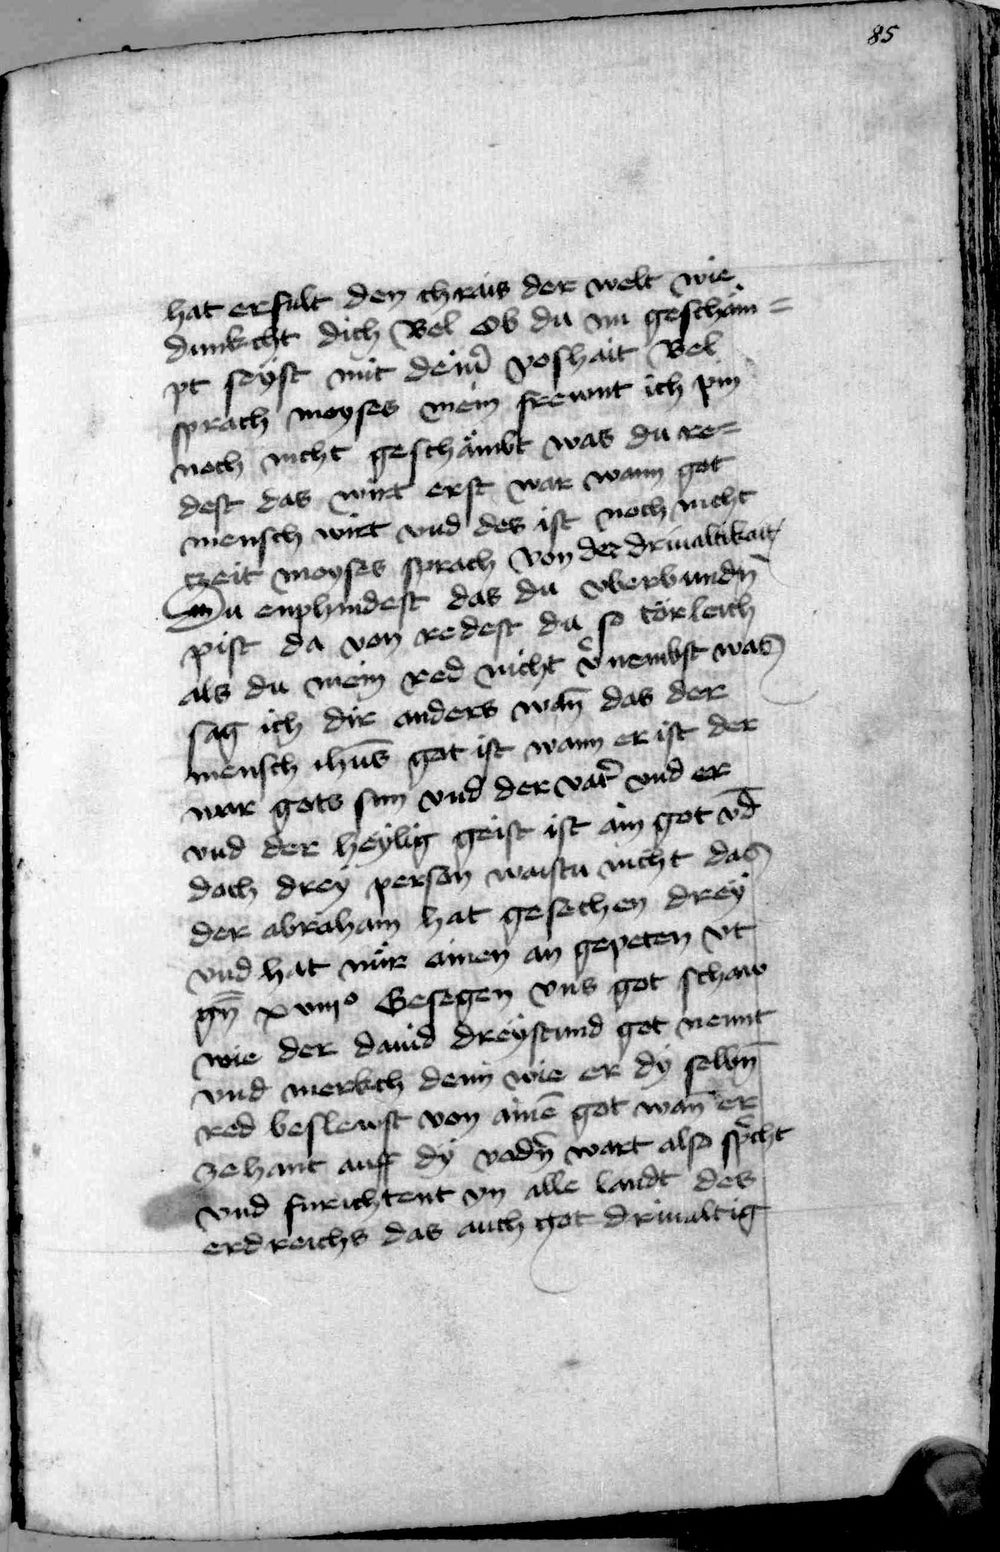 85
hat erfult den chrais der welt wie
dunkcht dich Bel Ob du nu geschäm=
pt seyst mit deiner poshait Bel
sprach moyses mein frewnt ich pin
noch nicht geschämbt was du re=
dest das wirt erst war wann got
mensch wirt vnd des ist noch nicht
czeit moyses sprach von der driualtikait
Du enphindest das du vberbundn̄
pist da von redest du so törleich
als du mein red nicht v̉nembst was
sag ich dir anders wan̄ das der
mensch ihūs got ist wann er ist der
war gots sun vnd der vat̉ vnd er
vnd der heylig geist ist ain got vn̄d
doch drey person waistu nicht das
der abraham hat gesechen drey
vnd hat nür ainen an gepeten vt
gn̄ xviiiº Gesegen vns got schaw
wie der dauid dreystund got nennt
vnd merkch denn wie er dy selbn̄
red beslewst von aine̅ got wan̄ er
zehant auff dy vodn̉ wart also sp̉cht
vnd furichtent yn alle landt des
erdreichs das auch got driualtig